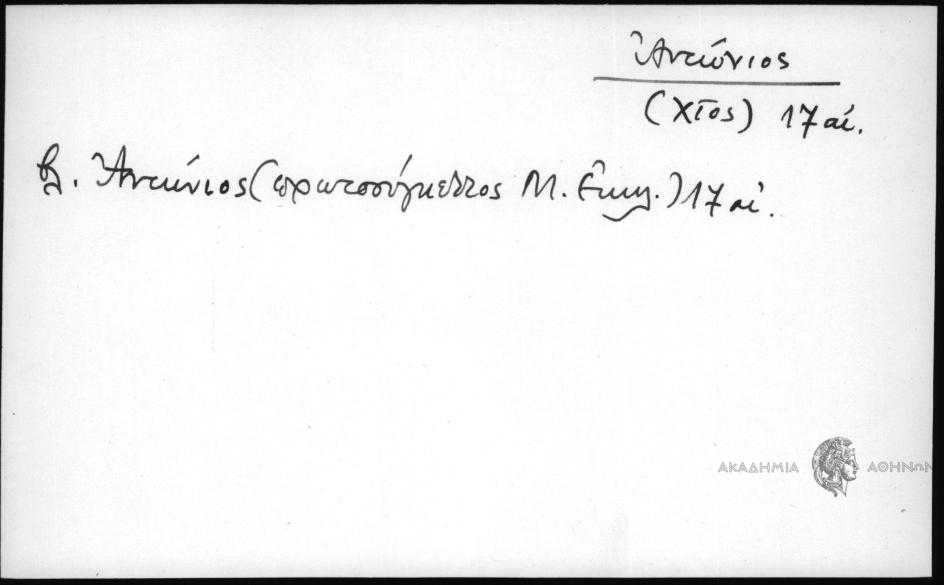 Ἀντώνιος
(Χῖος) 17 αἰ.
βλ. Ἀντώνιος (πρωτοσύγκελλος Μ. Ἐκκλ.) 17 αἰ.
ΑΚΑΔΗΜΙΑ ΑΘΗΝΩΝ